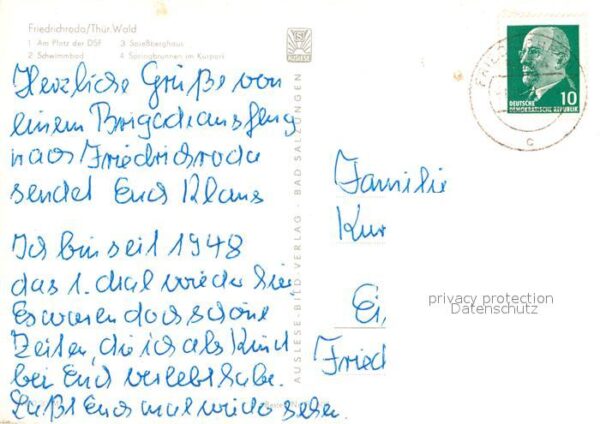 Friedrichroda/Thür. Wald
1 Am Platz der DSF 3 Spießberghaus
2 Schwimmbad 4 Springbrunnen im Kurpark
Herzliche Grüße von
einem Brigadeausflug
nach Friedrichroda
sendet Euch Klaus
Ich bin seit 1948
das 1. Mal wieder hier
Es waren doch schöne
Zeiten, die ich als Kind
bei Euch verlebt habe.
Laßt Euch mal wieder sehen.
AUSLESE-BILD-VERLAG · BAD SALZUNGEN
DEUTSCHE
DEMOKRATISCHE REPUBLIK
10
Familie
Kur
Ei,
Fried
privacy protection
Datenschutz